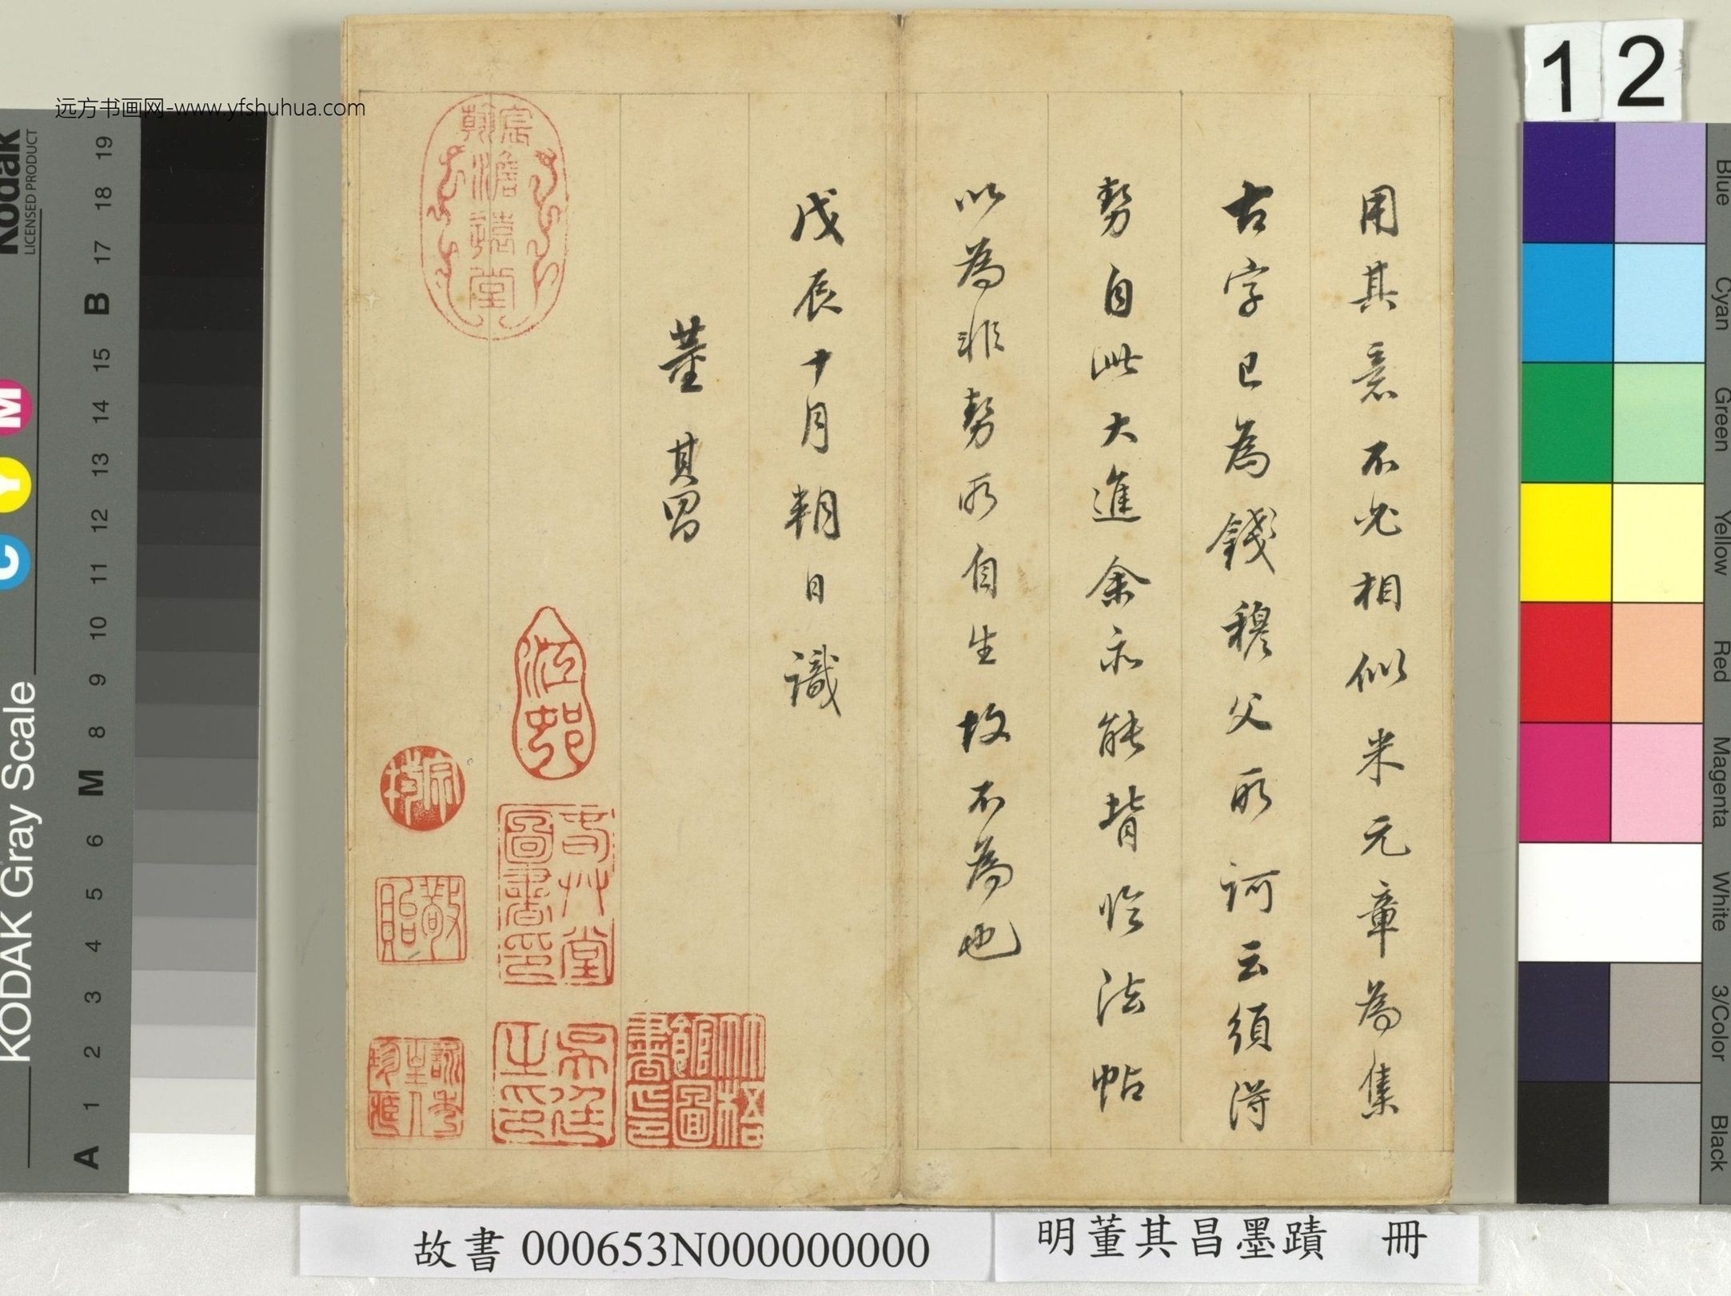 用其意不必相似米元章為集
古字已為錢穆父所訶云須得
勢自此大進余亦能背臨法帖
以為非勢所自生故不為也
戊辰十月朔日識
董其昌
宸翰
澹遠堂
江邨
竹窗
圖書印
吳廷
之印
远方书画网-www.yfshuhua.com
12
故書 000653N000000000
明董其昌墨蹟 冊
Kodak
LICENSED PRODUCT
KODAK Gray Scale
C Y M
A 1 2 3 4 5 6 M 8 9 10 11 12 13 14 15 B 17 18 19
Blue
Cyan
Green
Yellow
Red
Magenta
White
3/Color
Black